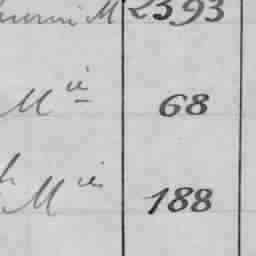 M 2393
M^ie 68
M^ies 188